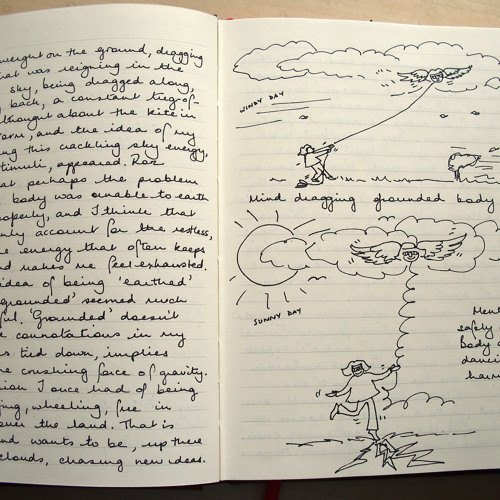 weight on the ground, dragging
that was reigning in the
sky, being dragged along,
back, a constant tug-of-
thought about the kite in
and the idea of my
this crackling sky energy,
stimuli, appeared. Roz
that perhaps the problem
body was unable to earth
properly, and I think that
account for the restless,
energy that often keeps
and makes me feel exhausted.
idea of being 'earthed'
'grounded' seemed much
'Grounded' doesn't
connotations in my
tied down, implies
crushing force of gravity.
I once had of being
wheeling, free in
over the land. That is
wants to be, up there
clouds, chasing new ideas.
WINDY DAY
Mind dragging grounded body
SUNNY DAY
safely
Body